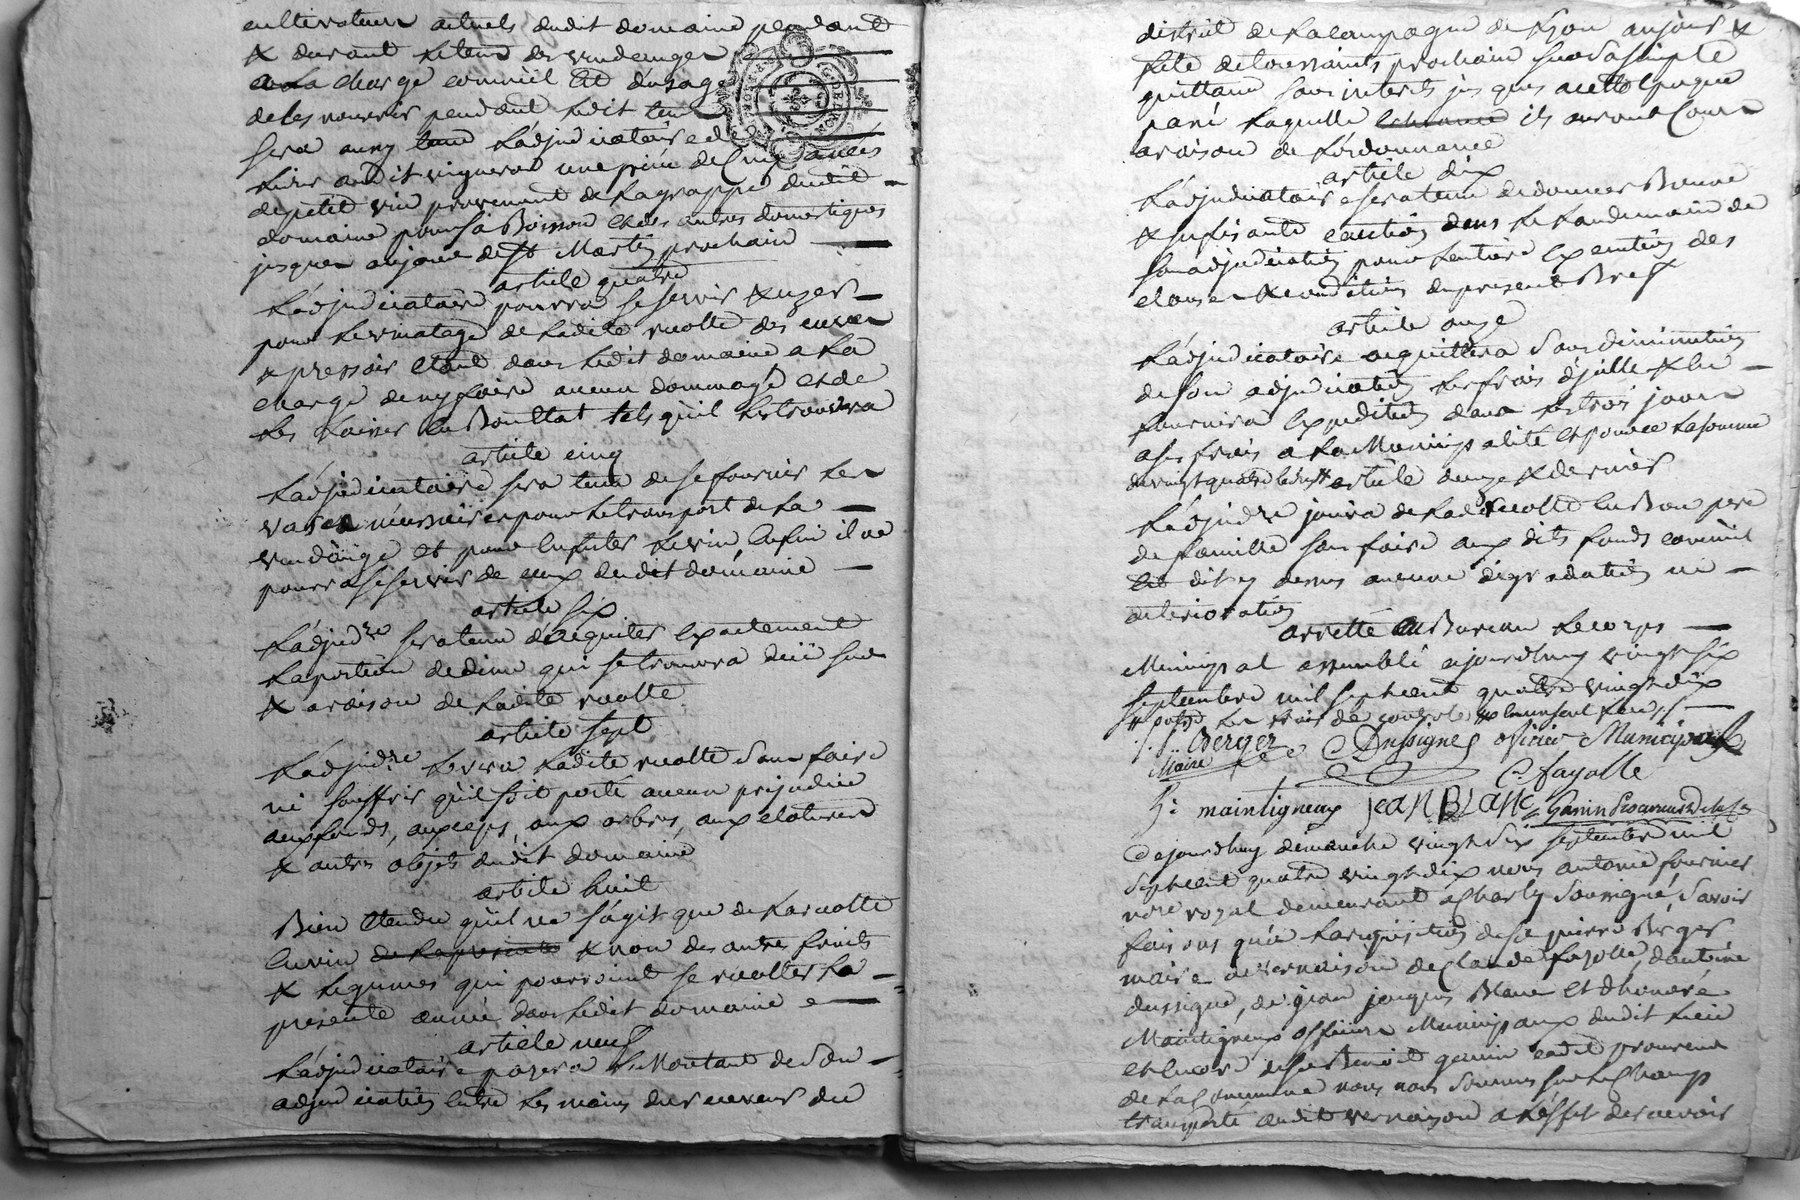 cultivateurs actuels dudit domaine pendant
& durant le tems des vendanges
a la charge comme il est d'usage
de les nourrir pendant ledit tems
sera aussy tenu l'adjudicataire de
audit vigneron une pièce de cinq années
de petit vin provenant de la grappe dudit
domaine pour sa Boisson et des autres domestiques
jusques au jour de St Martin prochain
article quatre
L'adjudicataire pourra se servir & uzer
pour le vinatage de ladite recolte des cuves
& pressoir etant dans ledit domaine a la
charge de n'y faire aucun dommage et de
les laisser en Bon Etat tels qu'il les trouvera
article cinq
L'adjudicataire sera tenu de se fournir les
vases necessaires pour le transport de la
vendange et pour enfuter le vin, enfin il ne
pourra se servir de ceux dudit domaine
article six
L'adjudre sera tenu d'acquiter exactement
la portion de dime qui se trouvera deüe sur
& a raison de ladite recolte
article sept
L'adjudre levera ladite recolte sans faire
ni souffrir qu'il soit porté aucun prejudice
aux fonds, aux ceps, aux arbres, aux clotures
& autres objets dudit domaine
article huit
Bien entendu qu'il ne s'agit que de la recolte
en vin de la presente & non des autres fruits
& legumes qui pourroient se recolter la
presente année dans ledit domaine
article neuf
L'adjudicataire payera le Montant de son
adjudication entre les mains du receveur du
district de la campagne de Lyon au jour &
fete de toussaints prochain sur sa simple
quittance sans interets jusques a cette epoque
passé laquelle ils auront Cours
a raison de l'ordonnance
article dix
L'adjudicataire sera tenu de donner Bonne
& suffisante caution dans le landemain de
son adjudication pour l'entiere Execution des
clauses & conditions du present Bref
article onze
L'adjudicataire acquittera sans diminution
de son adjudication les frais d'icelle & en
fournira expedition dans les trois jours
a ses frais a la Municipalité et pour ce la somme
de vingt quatre livres article douze & dernier
L'adjudre jouira de lade recolte en Bon pere
de famille sans faire aux dits fonds comme il
est dit cy dessus aucune degradation ni
deterioration
arrétté au Bureau le corps
Municipal assemblé ajourdhuy vingt six
septembre mil sept cent quatre vingt dix
les frois de controle
Berger Dussigne officier Municipal
Maire
C. fayolle
h: maintigneux jean BlANC Genin Procureur de la Cne
Cejourdhuy dimanche vingt six septembre mil
sept cent quatre vingt dix nous antoine fournier
nore royal demeurant a Charly soussigné, savoir
faisons qu'a la requisition de sr pierre Berger
maire de vernaison de Claude fayolle, d'antoine
dussigne, de jean jacques Blanc et d'honoré
Maintigneux officiers Municipaux dudit lieu
et encore de sr Benoit genin cadet procureur
de la Commune nous nous sommes sur le Champ
transporté audit vernaison a l'effet de recevoir